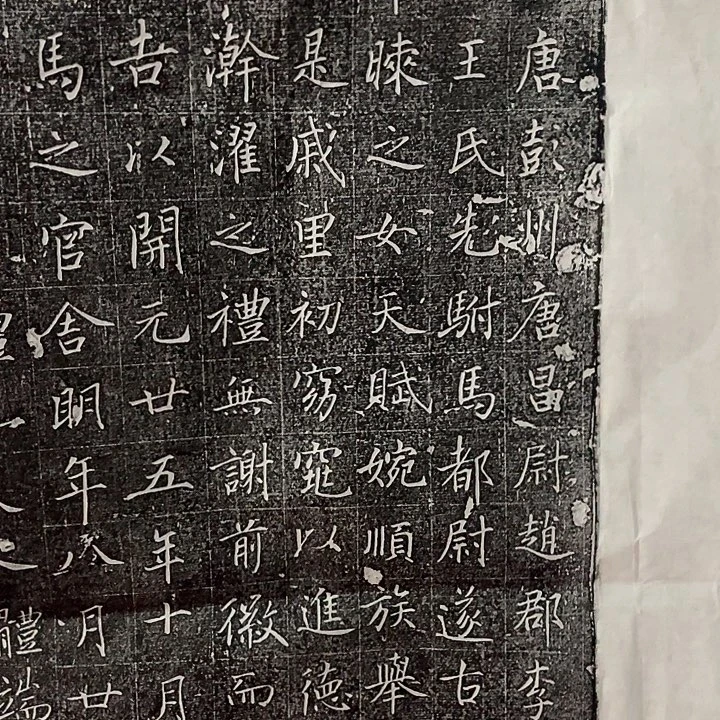 唐彭州唐昌尉趙郡李
王氏先駙馬都尉遂古
暕之女天賦婉順族舉
是戚里初窈窕以進德
澣濯之禮無謝前徽而
吉以開元廿五年十月
馬之官舍明年月廿
體端